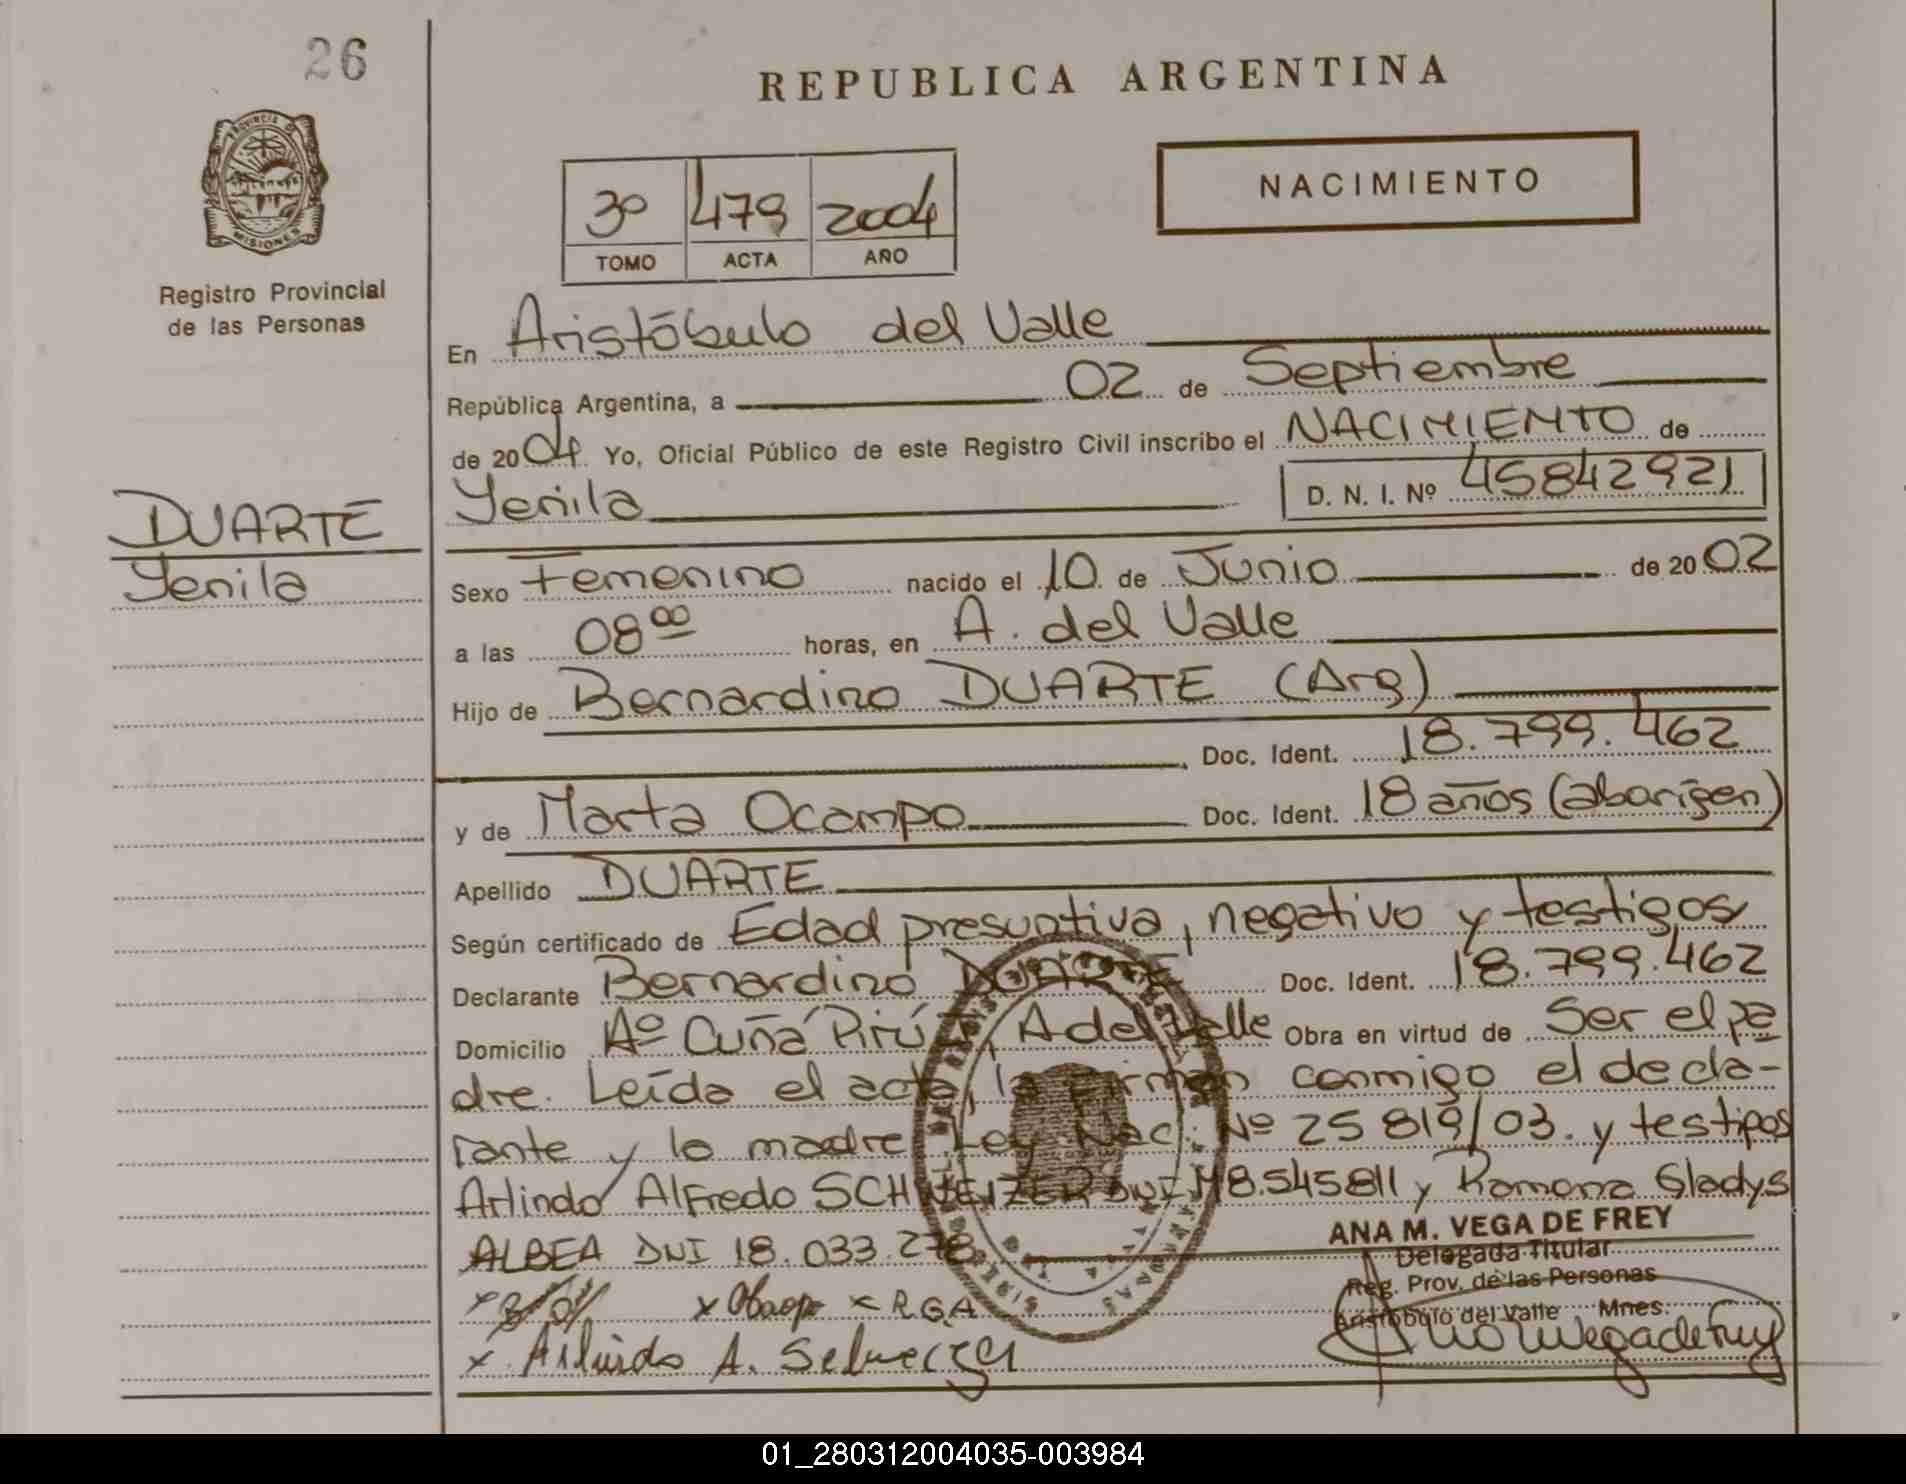 26
REPUBLICA ARGENTINA
PROVINCIA DE
MISIONES
Registro Provincial
de las Personas
3º 479 2004
TOMO ACTA AÑO
NACIMIENTO
En Aristóbulo del Valle
República Argentina, a 02 de Septiembre
de 2004 Yo, Oficial Público de este Registro Civil inscribo el NACIMIENTO de
Yenila D. N. I. Nº 45842921
DUARTE
Yenila
Sexo Femenino nacido el 10 de Junio de 2002
a las 08 00 horas, en A. del Valle
Hijo de Bernardino DUARTE (Arg)
Doc. Ident. 18.799.462
y de Marta Ocampo Doc. Ident. 18 años (aborigen)
Apellido DUARTE
Según certificado de Edad presuntiva, negativo y testigos
Declarante Bernardino DUARTE Doc. Ident. 18.799.462
Domicilio Aº Cuñá Pirú, A del Valle Obra en virtud de Ser el pa
dre. Leída el acta, la firman conmigo el decla-
rante y la madre Ley Nac. Nº 25 819/03. y testigos
Arlindo Alfredo SCHWEIZER DNI M8.545811 y Ramona Gladys
ALBEA DNI 18.033.278
x x x R.G.A
x Arlindo A.
ANA M. VEGA DE FREY
Delegada Titular
Reg. Prov. de las Personas
Aristóbulo del Valle Mnes.
01_280312004035-003984